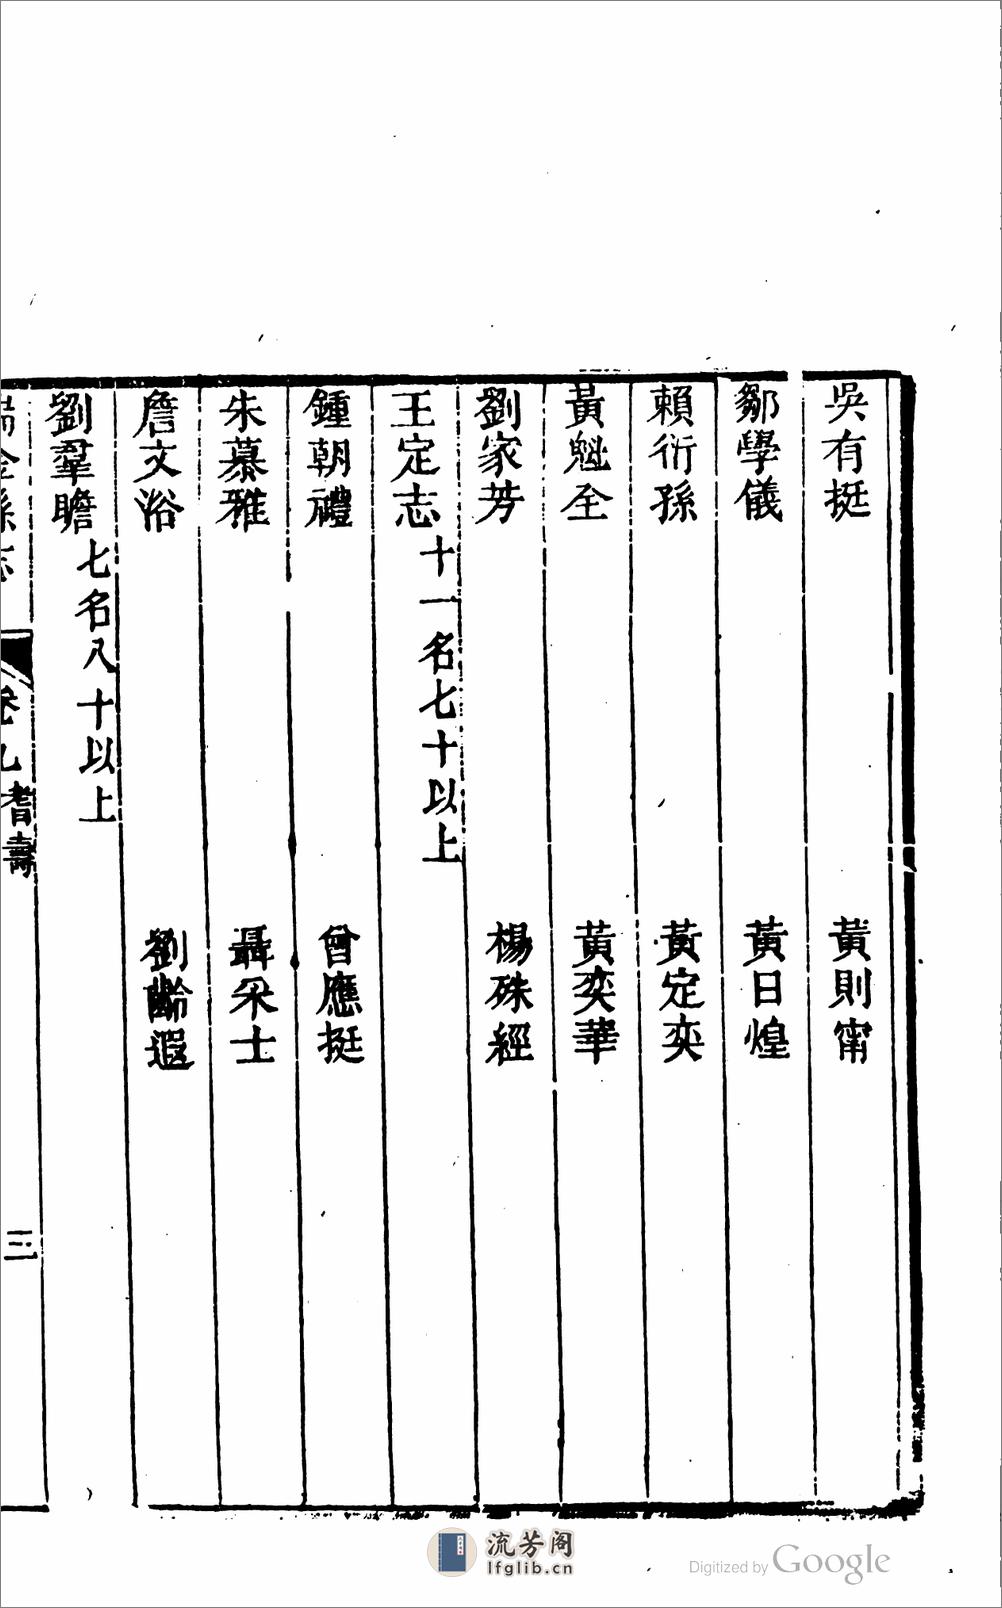 吳有挺　黃則甯
鄒學儀　黃日煌
賴衍孫　黃定奕
黃魁全　黃奕華
劉家芳　楊硃經
王定志十一名七十以上
鍾朝禮　曾應挺
朱慕雅　聶采士
詹文浴　劉齡遐
劉羣瞻七名八十以上
瑞金縣志　卷九耆壽　三
流芳阁
lfglib.cn
Digitized by Google